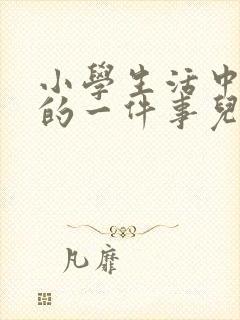 小學生活中
的一件事兒
凡靡